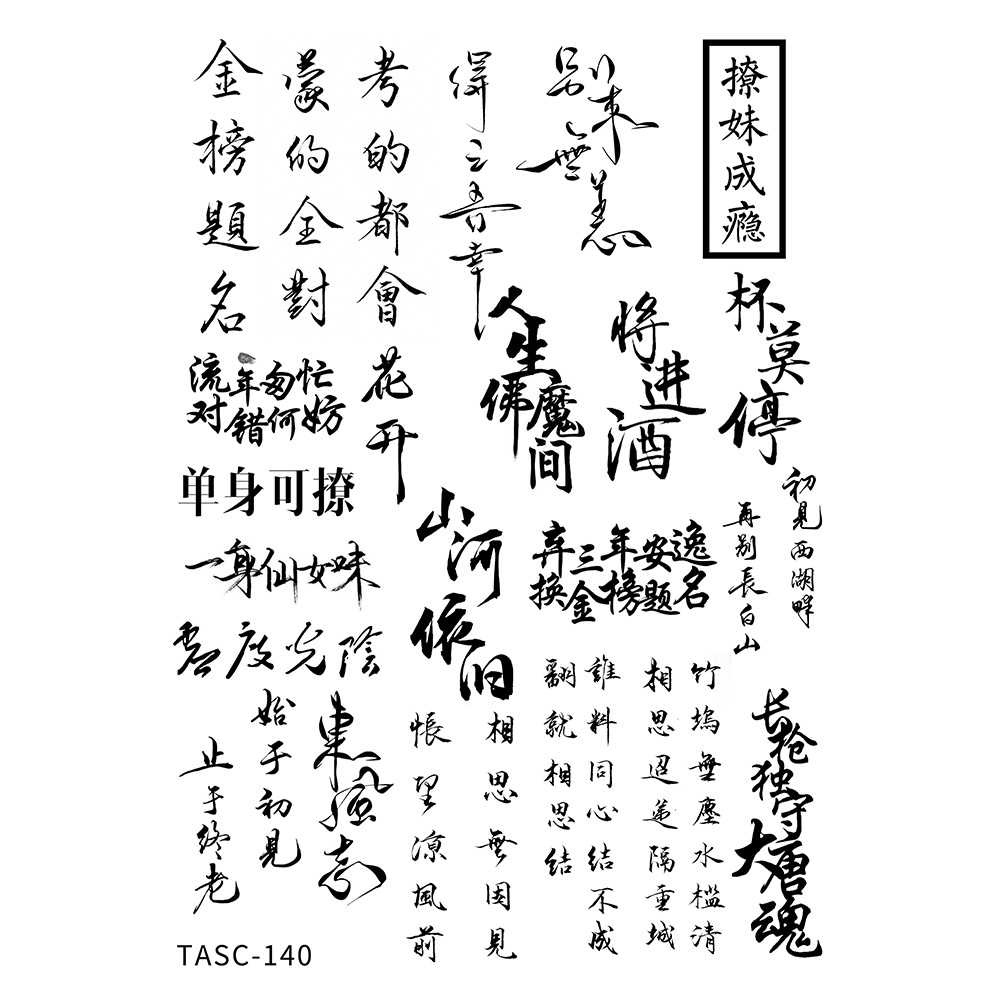 考的都會
蒙的全對
金榜題名
得之吾幸
别来無恙
撩妹成瘾
杯莫停
将进酒
人生佛魔间
花开
流年匆忙
对错何妨
单身可撩
一身仙女味
山河依旧
弃三年安逸
换金榜题名
初見西湖畔
再别長白山
虚度光陰
始于初見
止于终老
東風志
相思無因見
悵望涼風前
誰料同心結不成
翻就相思結
竹塢無塵水檻清
相思迢递隔重城
长枪独守大唐魂
TASC-140